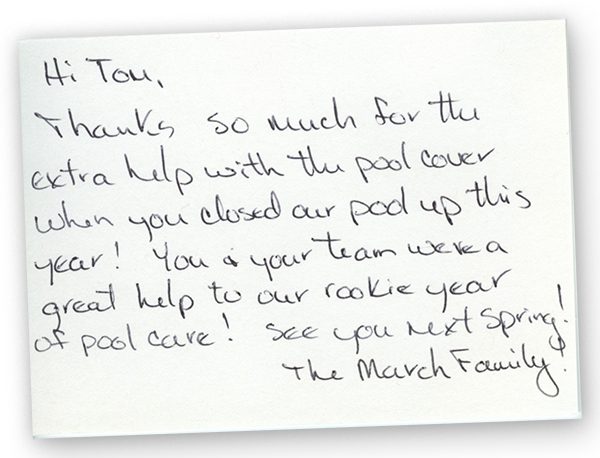 Hi Tom,
Thanks so much for the
extra help with the pool cover
when you closed our pool up this
year! You & your team were a
great help to our rookie year
of pool care! See you next Spring!
The March Family!